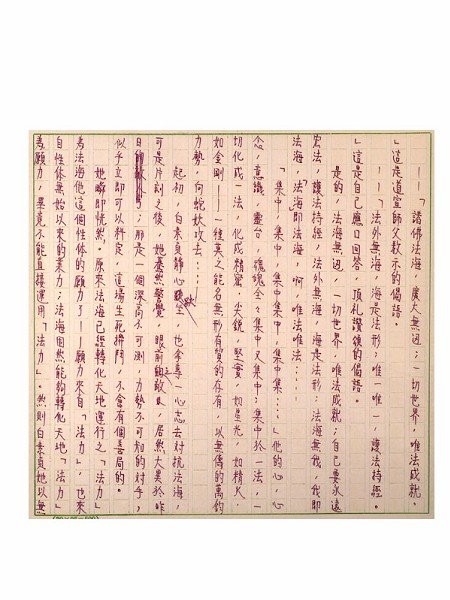 ——「諸佛法海，廣大無涯；一切世界，唯法成就。
」這是道宣師父教示的偈語。
——「法外無海，海是法形；唯一唯一，護法持經。
」這是自己應口回答，頂礼讚頌的偈語。
是的，法海無涯，一切世界，唯法成就，自己要永遠
宏法，護法持經，法外無海，海是法形；法海無我，我即
法海，法海即法海，啊，唯法唯法……
「集中，集中，集中集中，集中集……」他的心，心
念，意識，靈台，魂魄全々集中又集中；集中於一法，一
切化成一法，化成精蜜，尖銳，堅實，如星光，如精尺，
如金剛——一種莫之能名無形有質的存有，以無儔的萬鈞
力勢，向蛇妖攻去……
起初，白素貞靜心，也拿專一心志去對抗法海，
可是片刻之後，她驀然驚覺，眼前敵，居然大異於昨
日；那是一個深高不可測，力勢不可知的对手，
似乎立即可以料定，這場生死搏鬥，不會有個善局的。
她瞬即恍然。原來法海已經轉化天地運行之「法力」
為法海他這個性体的願力了——願力來自「法力」，也來
自性体無始以來的業力；法海固然能夠轉化天地「法力」
為願力，畢竟不能直接運用「法力」。然則白素貞她以無